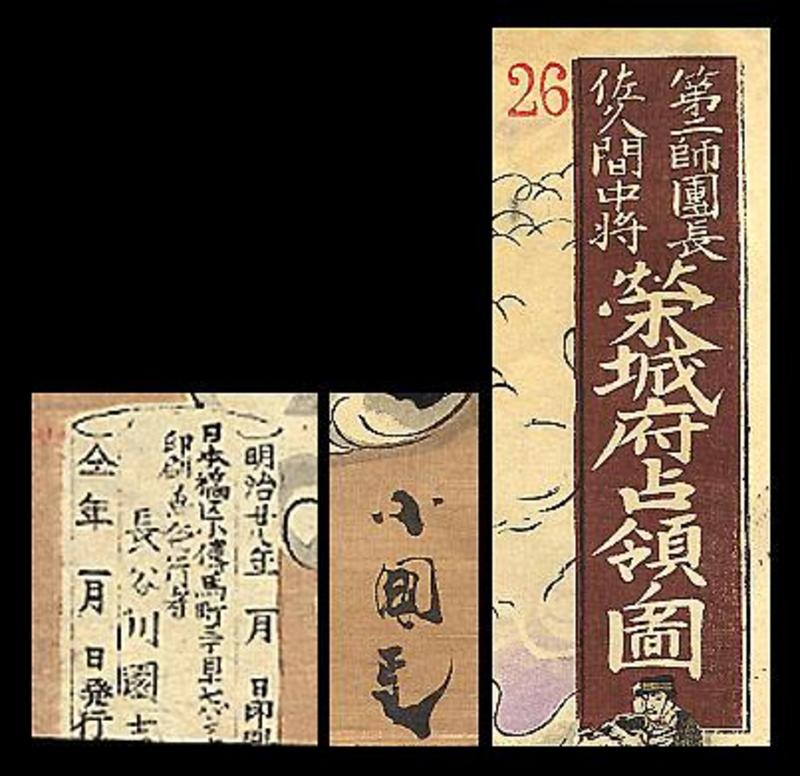 26
第二師團長
佐久間中将
榮城府占領圖
小國政
明治廿八年一月 日印刷
日本橋区小傳馬町三丁目
印刷兼発行者
長谷川園吉
仝年一月 日発行